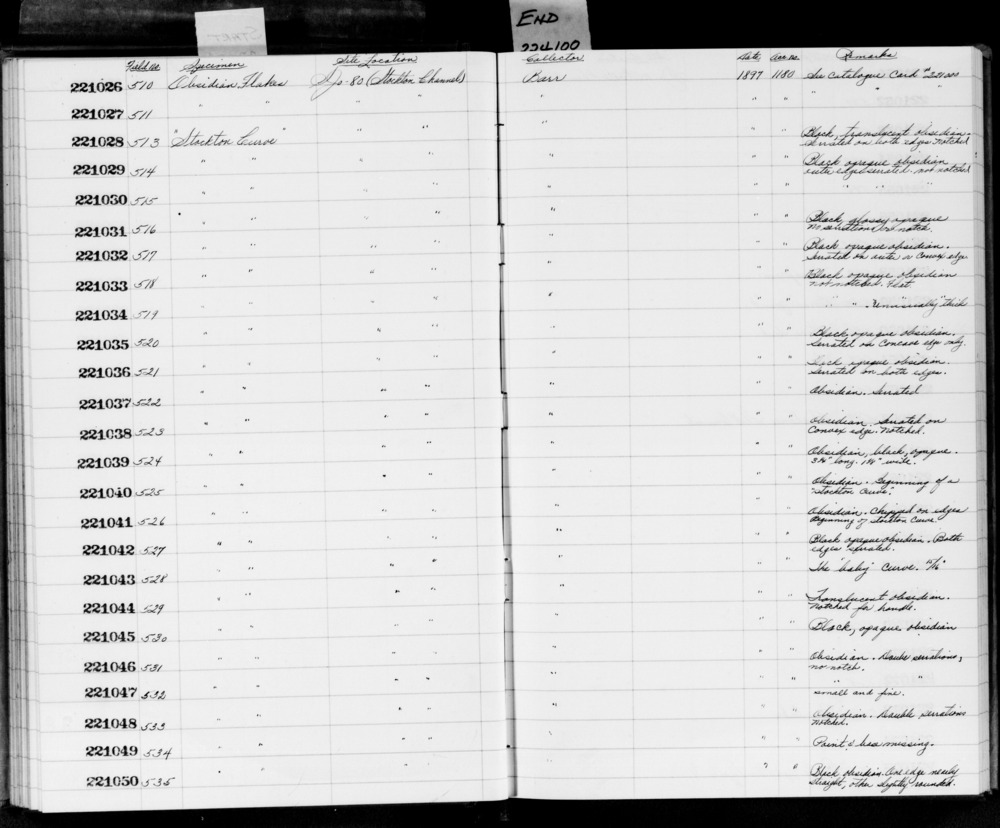 START
END
224100
Field No. Specimen Site Location Collector Date Acc. no. Remarks
221026 510 Obsidian Flakes Sjo-80 (Stockton Channel) Barr 1897 1180 See Catalogue Card #221000
221027 511 " " " " " " " " "
221028 513 "Stockton Curve" " " " " " Black, translucent obsidian.
Serrated on both edges. Notched
221029 514 " " " " " " " Black opaque obsidian
edge serrated. not notched
221030 515 " " " " " " " " " "
221031 516 " " " " " " " Black, glossy, opaque
No serrations or notch.
221032 517 " " " " " " " Black opaque obsidian.
Serrated on convex edge
221033 518 " " " " " " " Black opaque obsidian
not notched. Flat.
221034 519 " " " " " " " " " Unusually thick
221035 520 " " " " " " " Black opaque obsidian.
Serrated on concave edge only.
221036 521 " " " " " " " opaque obsidian.
Serrated on both edges.
221037 522 " " " " " " " Obsidian. Serrated
221038 523 " " " " " " " Obsidian. Serrated on
Convex edge. Notched.
221039 524 " " " " " " " Obsidian, black, opaque.
long. wide.
221040 525 " " " " " " " Obsidian. Beginning of a
"Stockton Curve".
221041 526 " " " " " " " Obsidian. Chipped on edges
Beginning of Stockton Curve.
221042 527 " " " " " " " Black opaque obsidian. Both
edges serrated.
221043 528 " " " " " " " The "baby" curve.
221044 529 " " " " " " " Translucent obsidian.
Notched for handle.
221045 530 " " " " " " " Black, opaque obsidian
221046 531 " " " " " " " Obsidian. Double serrations,
no notch.
221047 532 " " " " " " " " "
small and fine.
221048 533 " " " " " " " Obsidian. Double serrations
Notched.
221049 534 " " " " " " " Point & base missing.
221050 535 " " " " " " " Black obsidian. One edge nearly
straight, other slightly rounded.